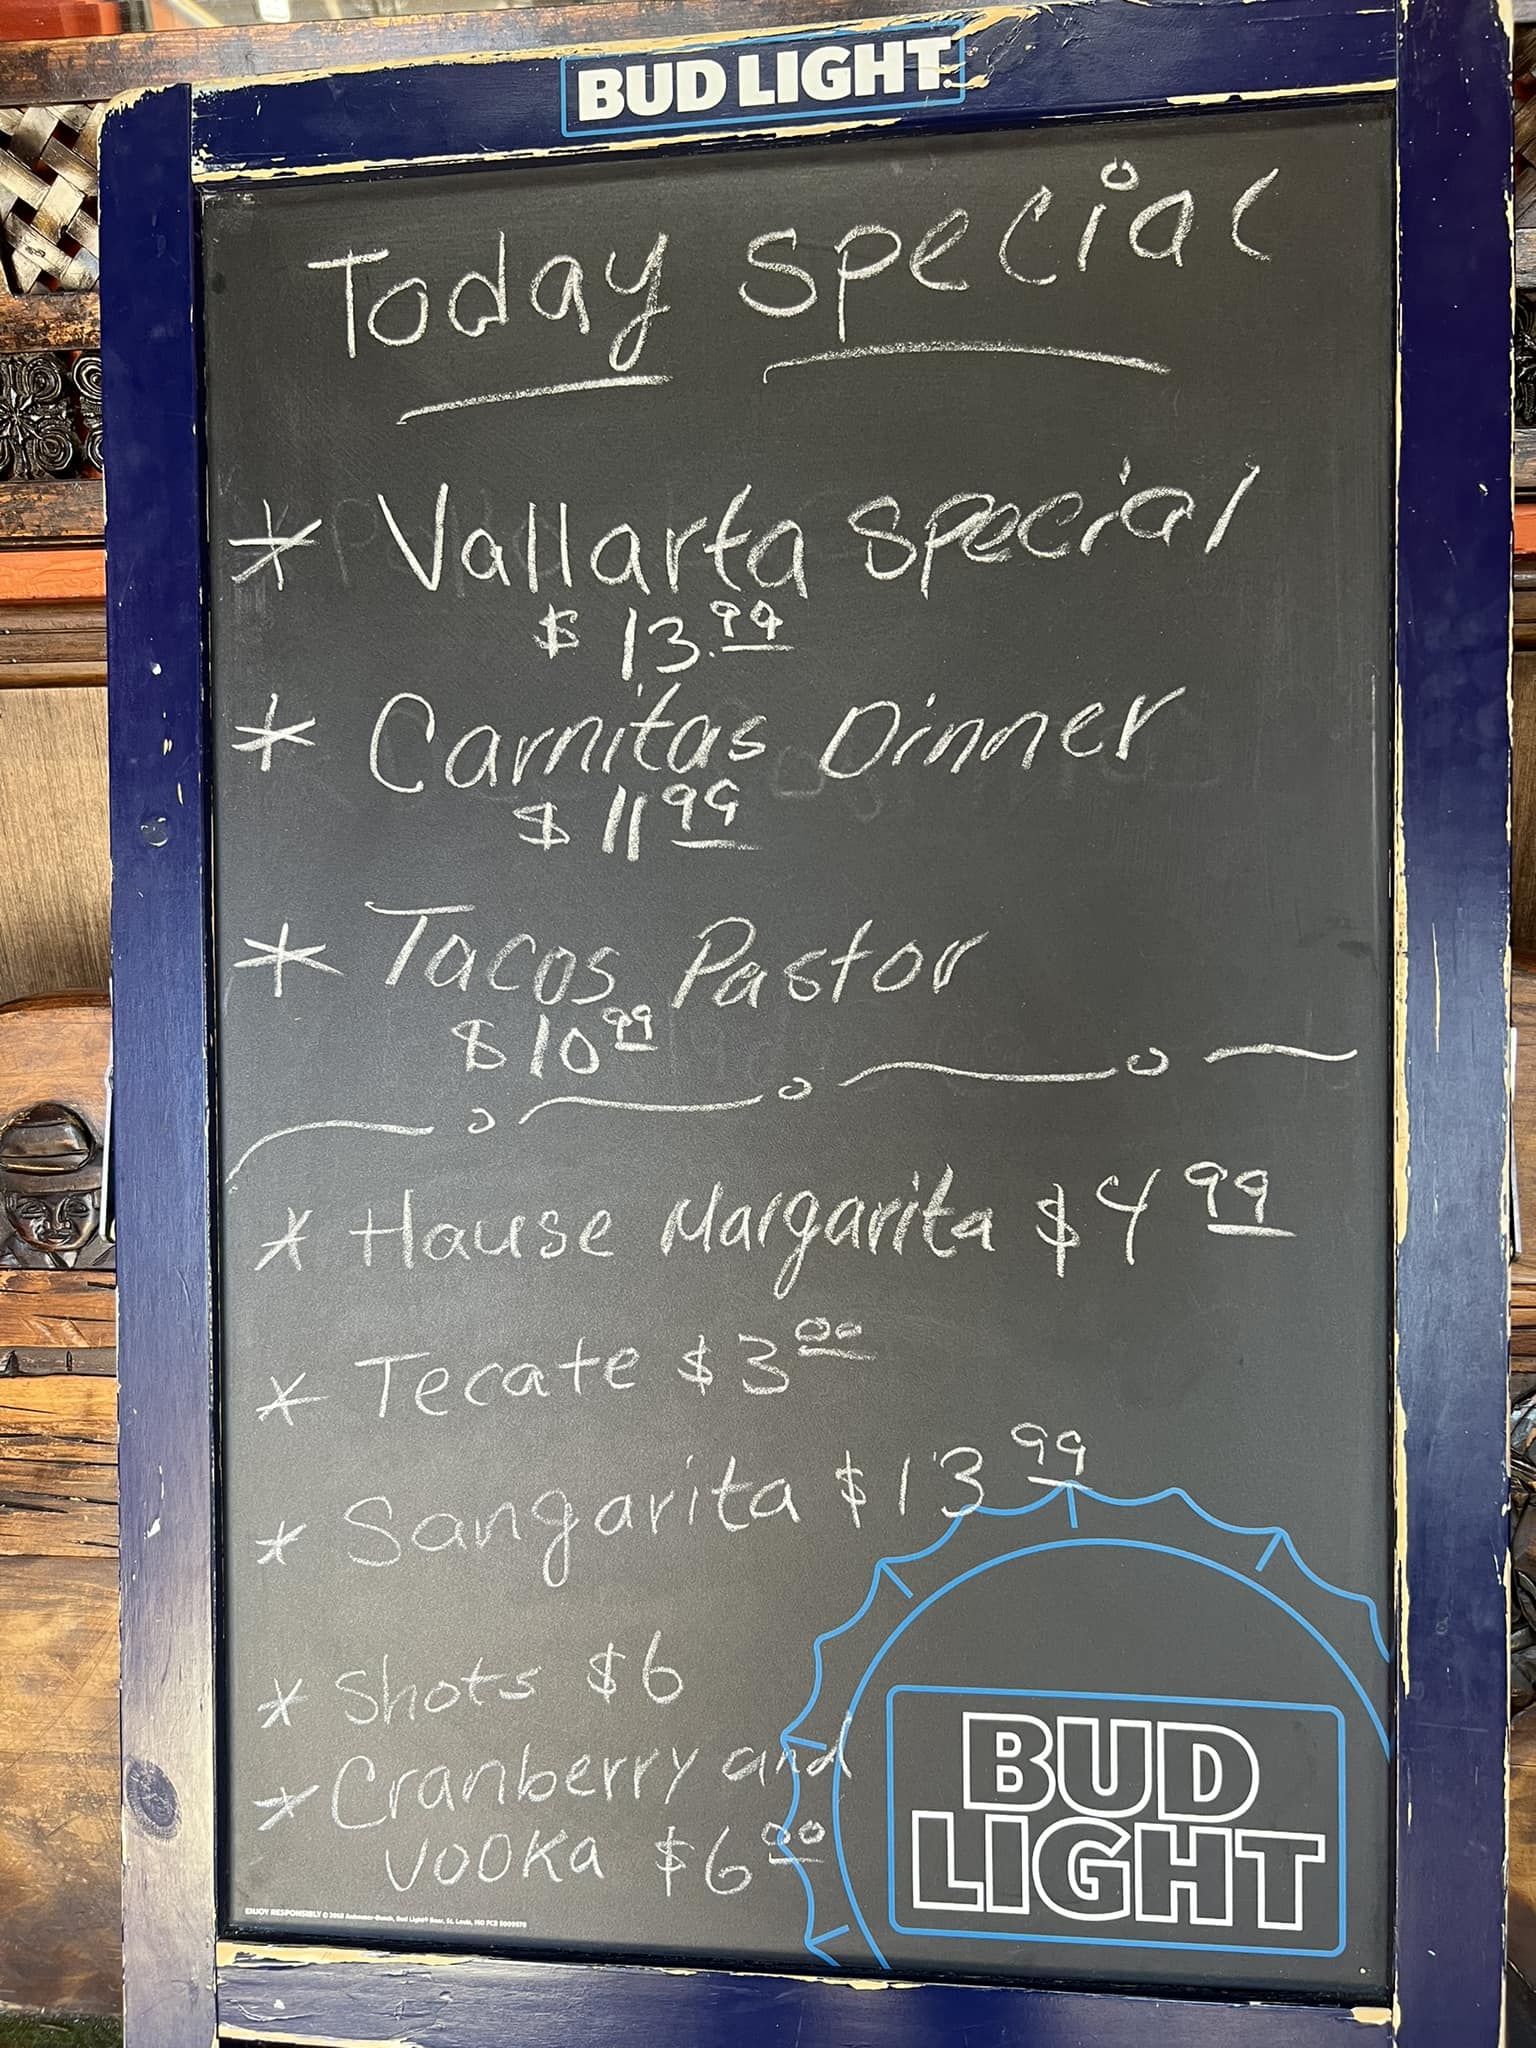 BUD LIGHT
Today special
* Vallarta special
$ 13.99
* Carnitas Dinner
$ 11 99
* Tacos Pastor
$ 10 99
* Hause Margarita $ 4 99
* Tecate $ 3 00
* Sangarita $ 13 99
* Shots $6
* Cranberry and
vodka $6 00
BUD
LIGHT
ENJOY RESPONSIBLY © 2018 Anheuser-Busch, Bud Light® Beer, St. Louis, MO